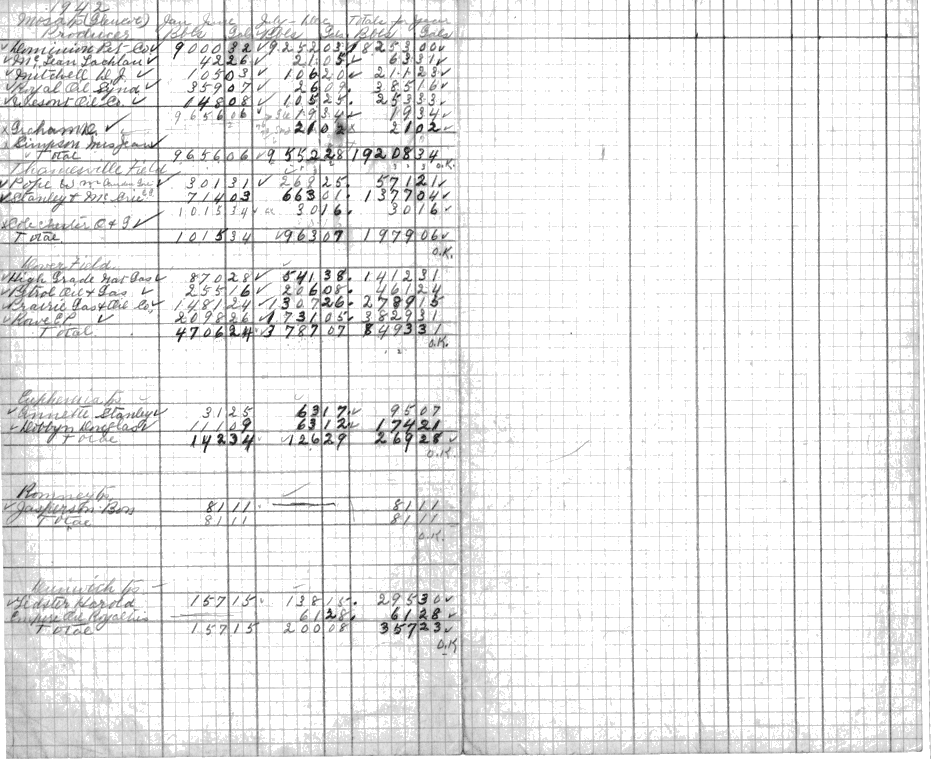 1942
Mosa Tp (Glencoe) Jan June July - Dec Totals for year
Producer Bbls Gals Bbls Gals Bbls Gals
✓ Dominion Pet. Co ✓ 9000 32 ✓ 9252 03 ✓ 18253 00 ✓
✓ McLean Lachlan ✓ 42 26 ✓ 21 05 ✓ 63 31 ✓
✓ Mitchell D J ✓ 105 03 ✓ 106 20 ✓ 211 23 ✓
✓ Royal Oil Synd ✓ 359 07 ✓ 26 09 . 385 16 ✓
✓ Vesont Oil Co. ✓ 148 08 ✓ 105 25 . 253 33 ✓
9656 06 ✓ 19 34 ✓ 19 34 ✓
x Graham D. ✓ 21 02 x 21 02 ✓
x Simpson Mrs Jean ✓
✓ Total 9656 06 ✓ 9552 28 19208 34
Thamesville Field O.K.
✓ Pope W. 301 31 ✓ 268 25 . 571 21 ✓
✓ Stanley & McGuire 714 03 663 01 . 1377 04 ✓
1015 34 ✓ 30 16 . 30 16 ✓
x Colchester O & G ✓
Total 1015 34 ✓ 963 07 1979 06 ✓
O.K.
Dover Field
✓ High Grade Nat Gas ✓ 870 28 ✓ 541 38 . 1412 31
✓ Petrol Oil & Gas ✓ 255 16 ✓ 206 08 . 461 24
✓ Prairie Gas & Oil Co. 1481 24 ✓ 1307 26 . 2789 15
✓ Rowe E P ✓ 2098 26 ✓ 1731 05 ✓ 3829 31
Total 4706 24 ✓ 3787 07 8493 31
O.K.
Euphemia Tp
✓ Annett Stanley ✓ 31 25 63 17 ✓ 95 07
✓ Dobbyn Douglas ✓ 111 09 63 12 ✓ 174 21
Total 142 34 126 29 269 28 ✓
O.K.
Romney Tp.
✓ Jasperson Bon 81 11 81 11
Total 81 11 81 11
O.K.
Dunwich Tp
✓ Lidster Harold 157 15 138 15 . 295 30 ✓
Empire Oil Royalties 61 28 . 61 28 ✓
Total 157 15 200 08 357 23 ✓
O.K